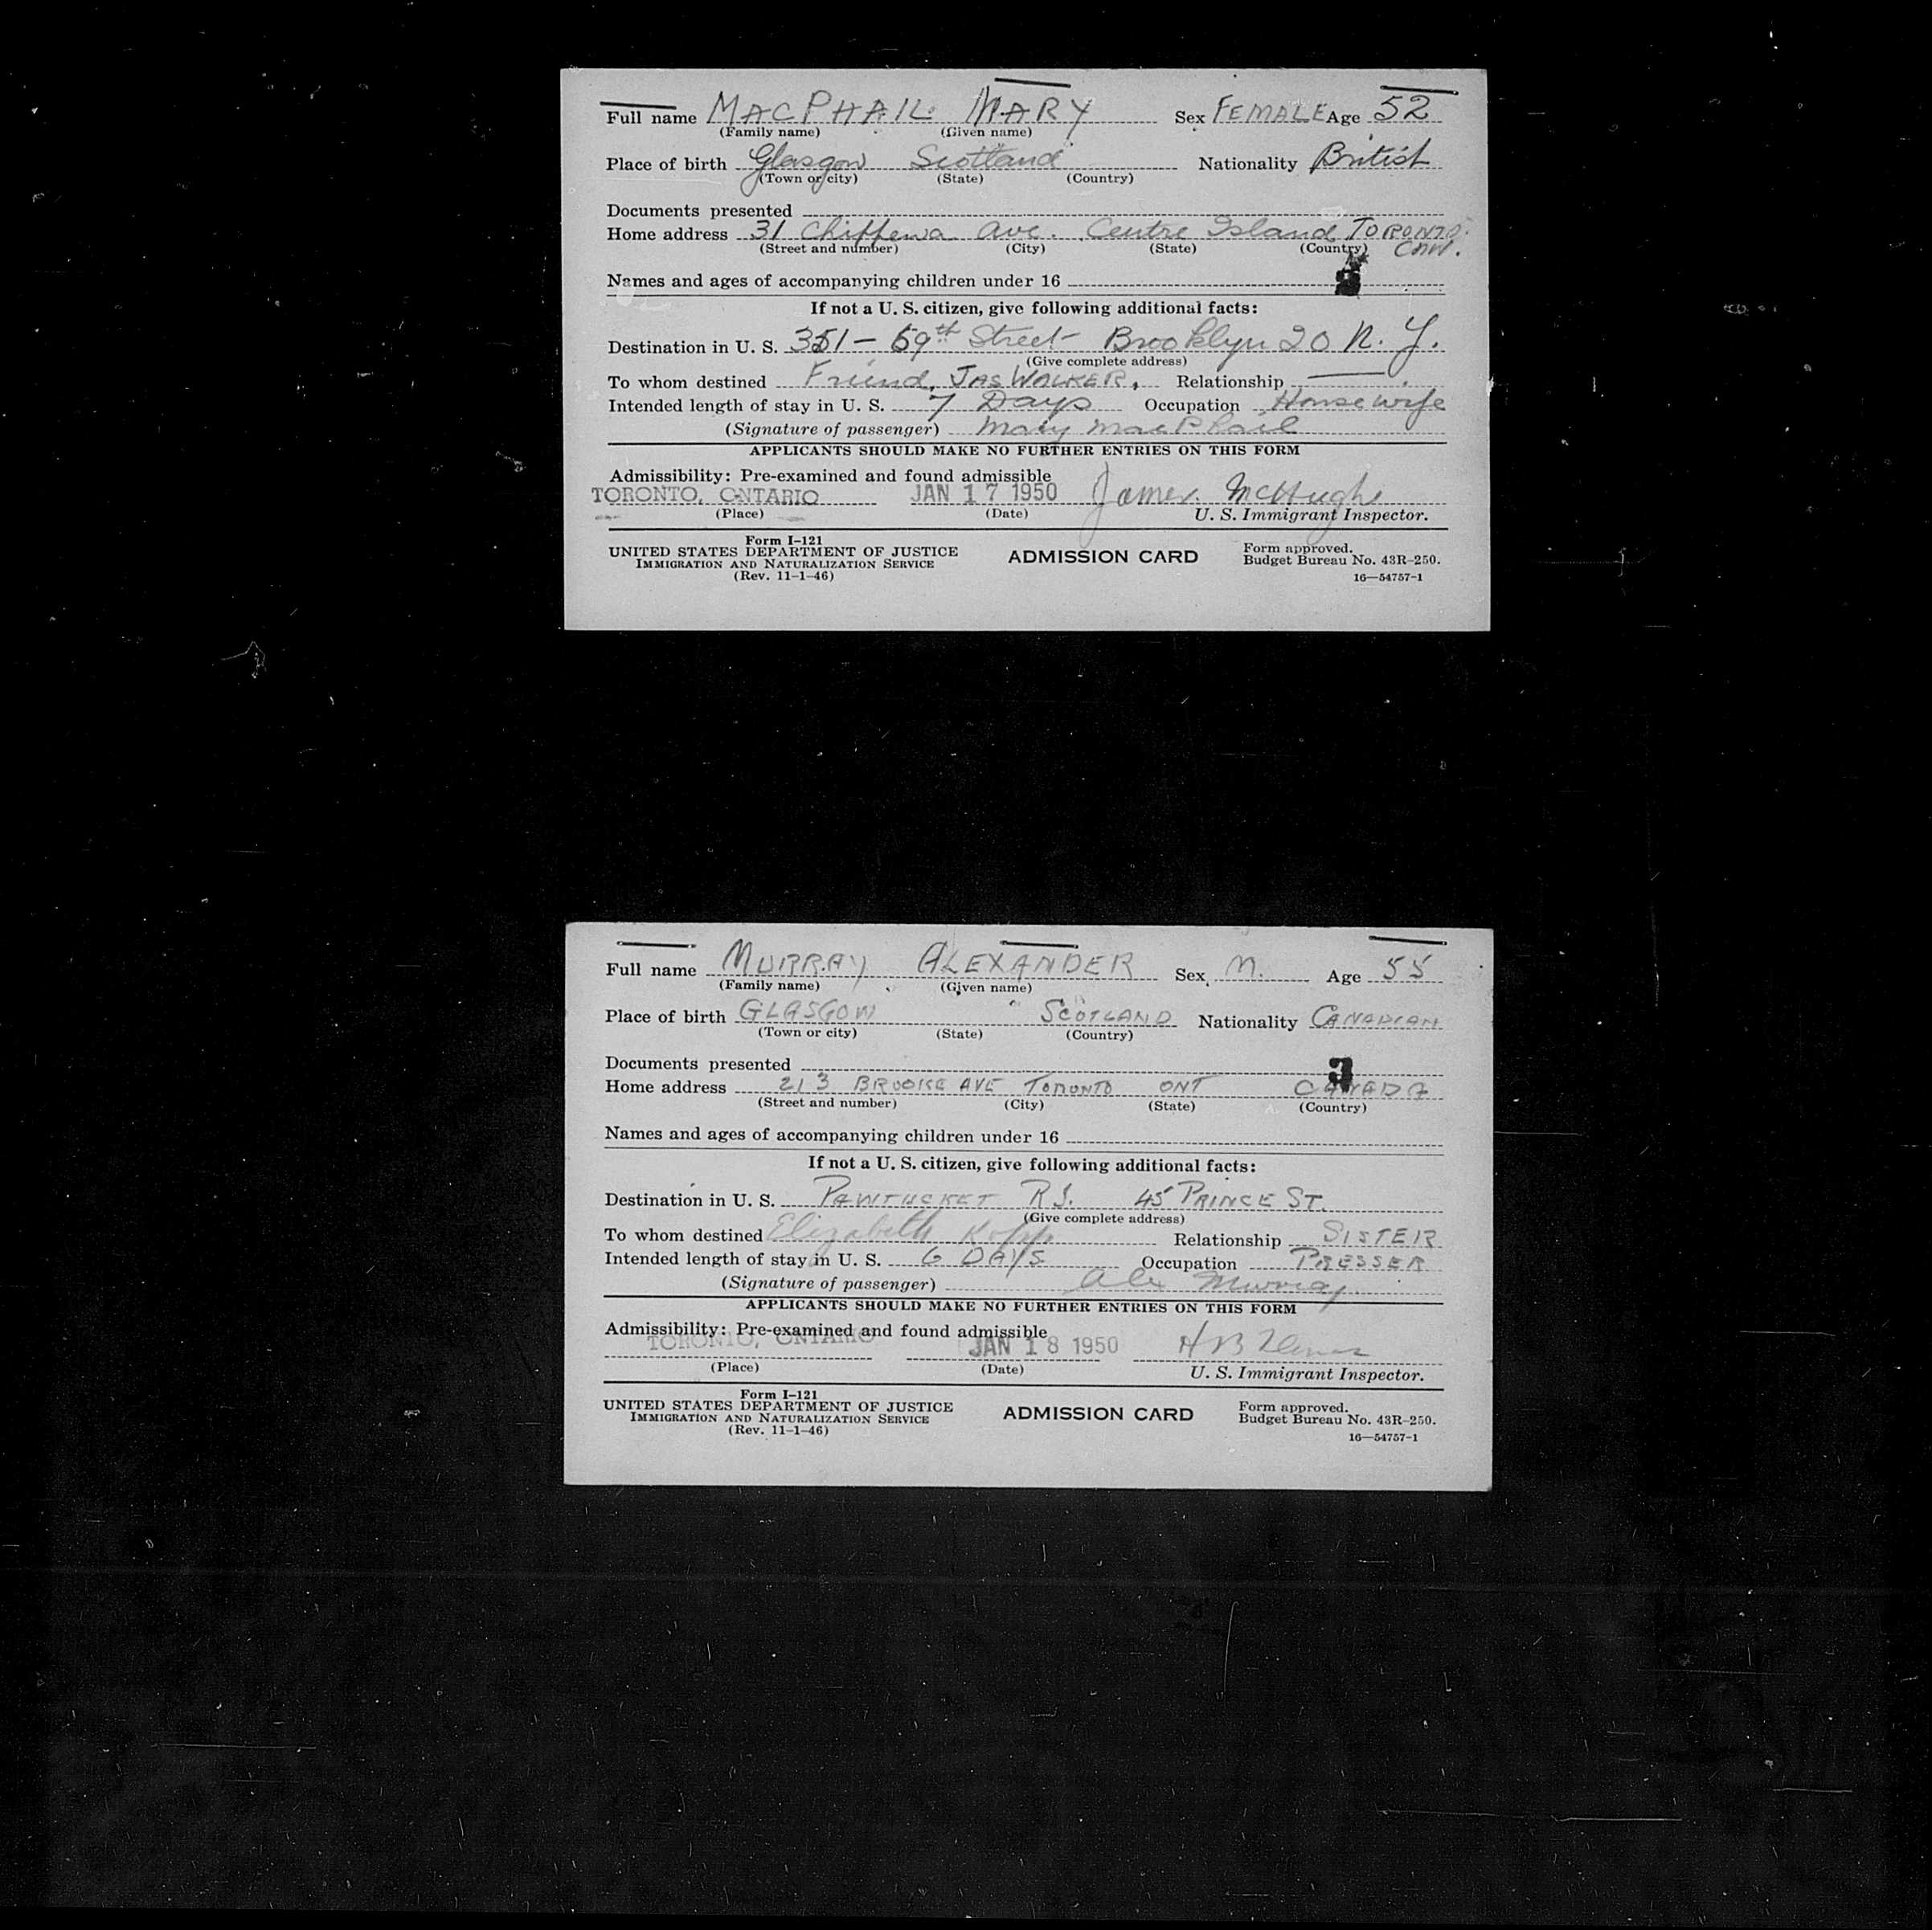 Full name MACPHAIL MARY Sex FEMALE Age 52
(Family name) (Given name)
Place of birth Glasgow Scotland Nationality British
(Town or city) (State) (Country)
Documents presented
Home address 31 Chippewa Ave. Centre Island TORONTO
(Street and number) (City) (State) (Country) CAN.
Names and ages of accompanying children under 16
If not a U. S. citizen, give following additional facts:
Destination in U. S. 351 - 59th Street Brooklyn 20 N. Y.
(Give complete address)
To whom destined Friend, JAS WALKER, Relationship
Intended length of stay in U. S. 7 Days Occupation Housewife
(Signature of passenger) Mary MacPhail
APPLICANTS SHOULD MAKE NO FURTHER ENTRIES ON THIS FORM
Admissibility: Pre-examined and found admissible
TORONTO, ONTARIO JAN 17 1950 James McHugh
(Place) (Date) U. S. Immigrant Inspector.
Form I-121
UNITED STATES DEPARTMENT OF JUSTICE
IMMIGRATION AND NATURALIZATION SERVICE
(Rev. 11-1-46)
ADMISSION CARD
Form approved.
Budget Bureau No. 43R-250.
16—54757-1
Full name MURRAY ALEXANDER Sex M. Age 55
(Family name) (Given name)
Place of birth GLASGOW SCOTLAND Nationality CANADIAN
(Town or city) (State) (Country)
Documents presented 3
Home address 213 BROOKE AVE TORONTO ONT CANADA
(Street and number) (City) (State) (Country)
Names and ages of accompanying children under 16
If not a U. S. citizen, give following additional facts:
Destination in U. S. PAWTUCKET R.I. 45 PRINCE ST.
(Give complete address)
To whom destined Elizabeth Relationship SISTER
Intended length of stay in U. S. 6 DAYS Occupation PRESSER
(Signature of passenger) Alex Murray
APPLICANTS SHOULD MAKE NO FURTHER ENTRIES ON THIS FORM
Admissibility: Pre-examined and found admissible
TORONTO, ONTARIO JAN 18 1950
(Place) (Date) U. S. Immigrant Inspector.
Form I-121
UNITED STATES DEPARTMENT OF JUSTICE
IMMIGRATION AND NATURALIZATION SERVICE
(Rev. 11-1-46)
ADMISSION CARD
Form approved.
Budget Bureau No. 43R-250.
16—54757-1